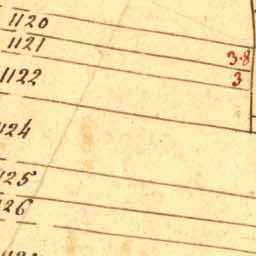 1120
1121
3.8
1122
3
1124
1125
1126